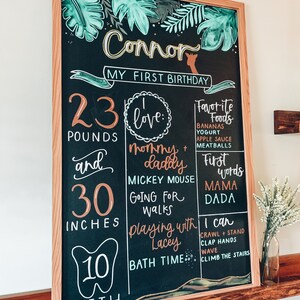 Connor
MY FIRST BIRTHDAY
23
POUNDS
and
30
INCHES
10
I
love:
mommy +
daddy
MICKEY MOUSE
GOING FOR
WALKS
Playing with
Lacey
BATH TIME
Favorite
Foods
BANANAS
YOGURT
APPLE SAUCE
MEATBALLS
First
words
MAMA
DADA
I can
CRAWL + STAND
CLAP HANDS
WAVE
CLIMB THE STAIRS